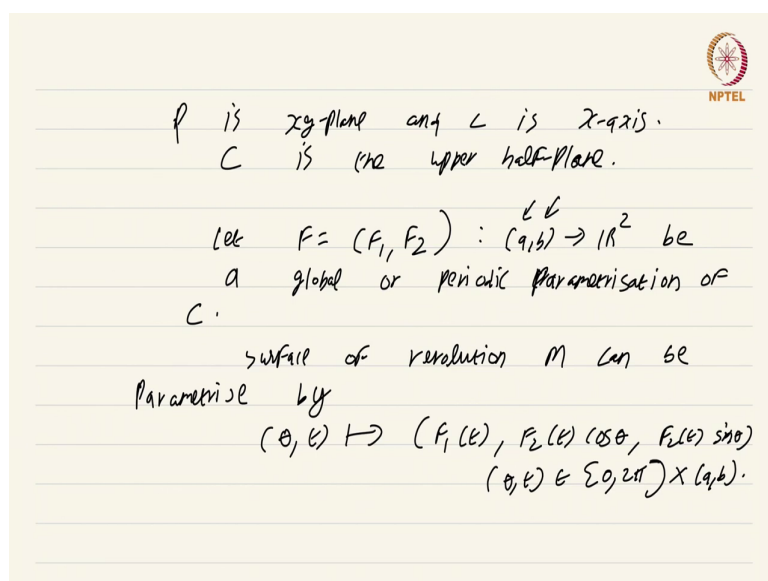 NPTEL
P is xy-plane and L is x-axis.
C is in the upper half-plane.
let F = (F₁, F₂) : (a,b) → ℝ² be
a global or periodic parametrisation of
C.
surface of revolution M can be
Parametrise by
(θ, t) ↦ (F₁(t), F₂(t) cosθ, F₂(t) sinθ)
(θ,t) ∈ [0,2π] × (a,b).